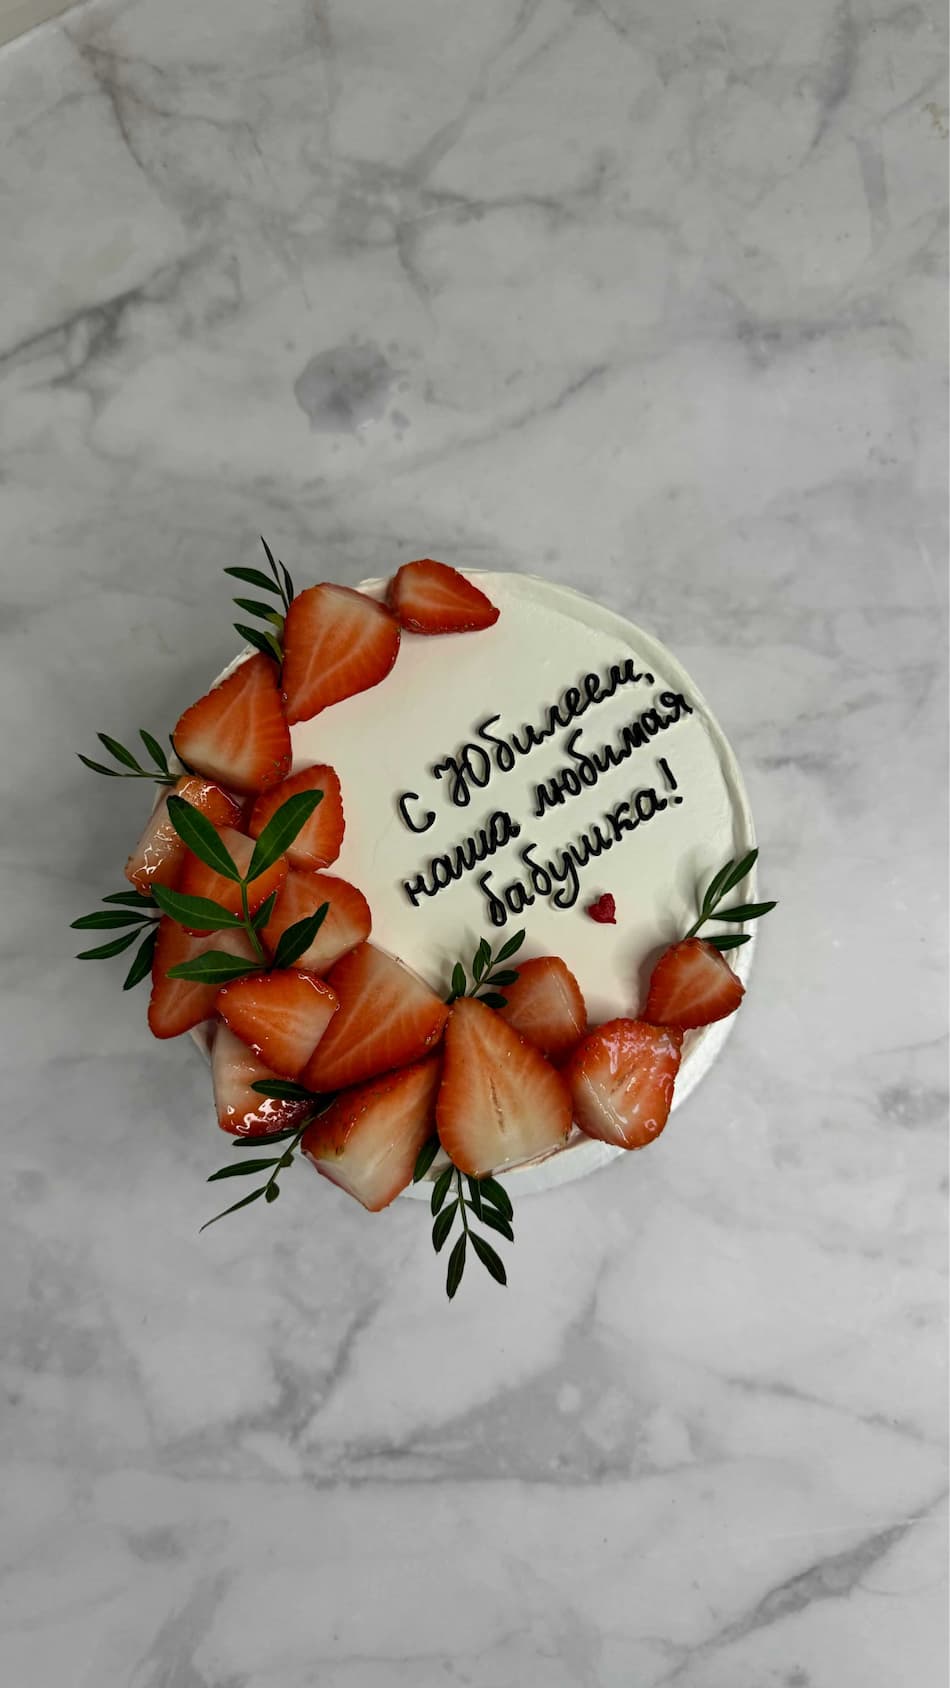 С Юбилеем,
наша любимая
бабушка!